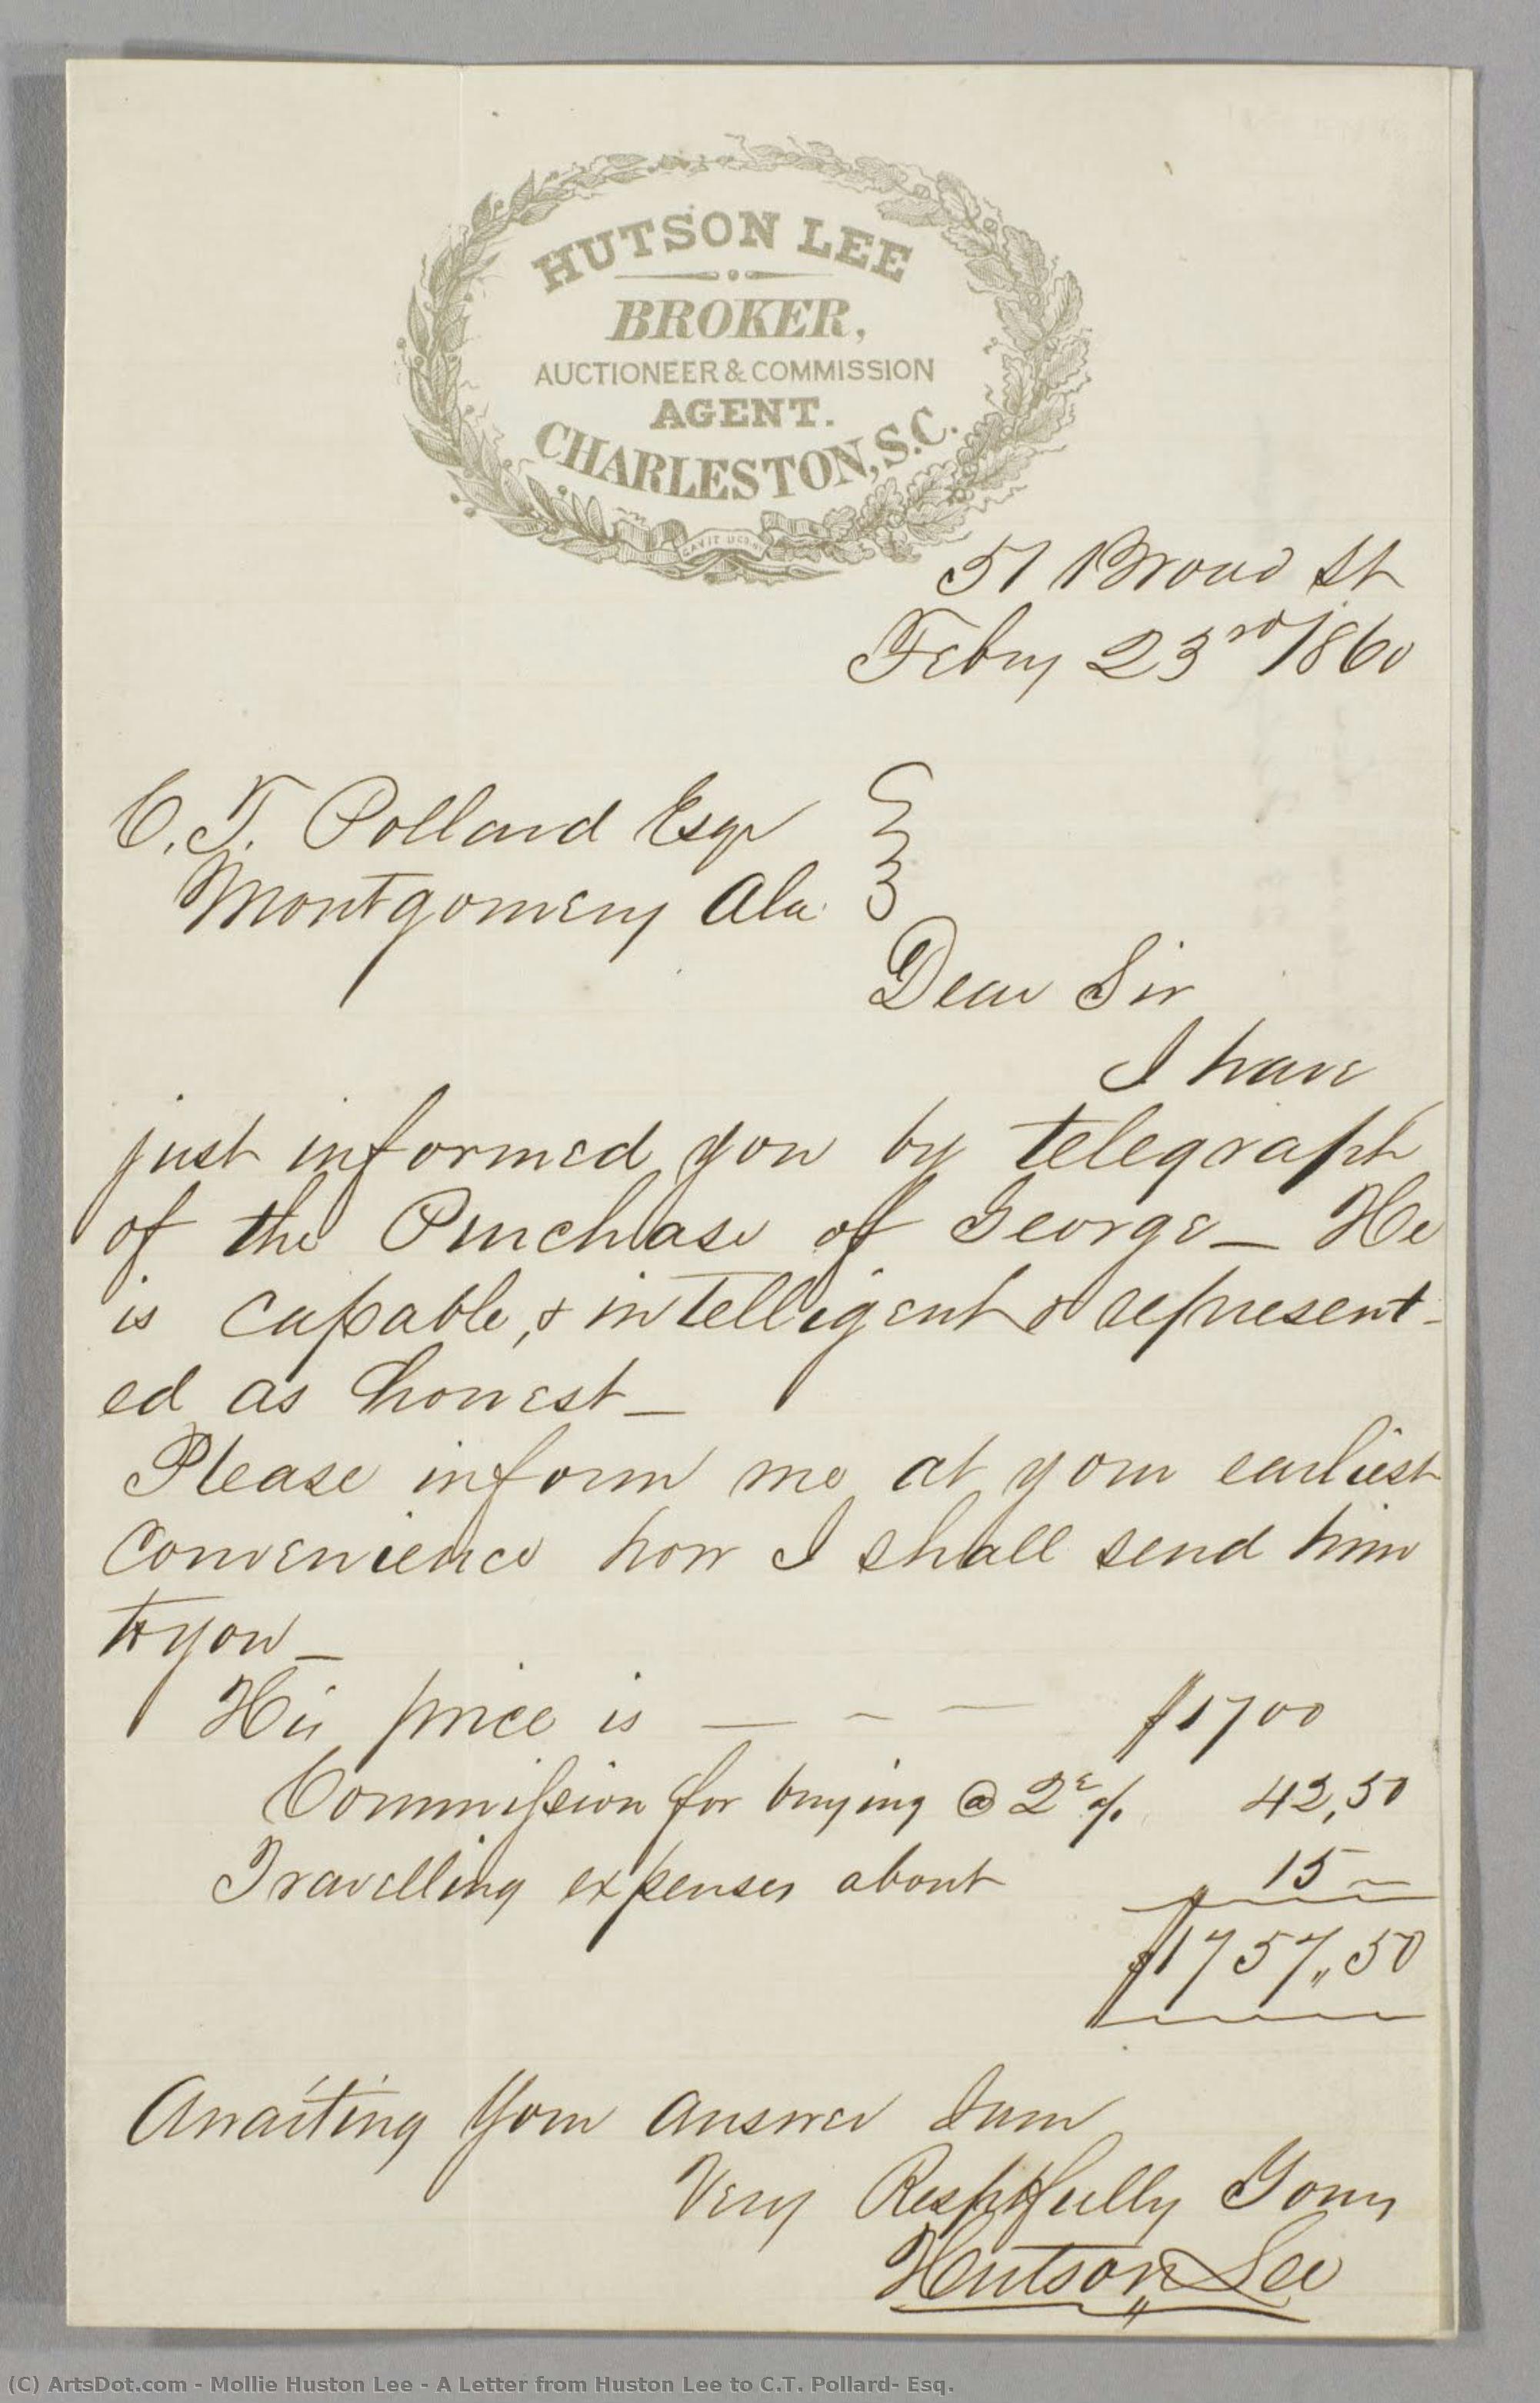 HUTSON LEE
BROKER,
AUCTIONEER & COMMISSION
AGENT.
CHARLESTON, S.C.
51 Broad St
Feby 23rd/1860
C. T. Pollard Esqr
Montgomery Ala.
Dear Sir
I have
just informed you by telegraph
of the Purchase of George_ He
is capable, & intelligent & represent-
ed as honest_
Please inform me at your earliest
convenience how I shall send him
to you_
His price is _ _ _ $1700
Commission for buying @ 2 % 42,50
Travelling expenses about 15 –
$1757,,50
Awaiting your answer I am
Very Respctfully Yours
Hutson Lee
(C) ArtsDot.com - Mollie Huston Lee - A Letter from Huston Lee to C.T. Pollard- Esq.